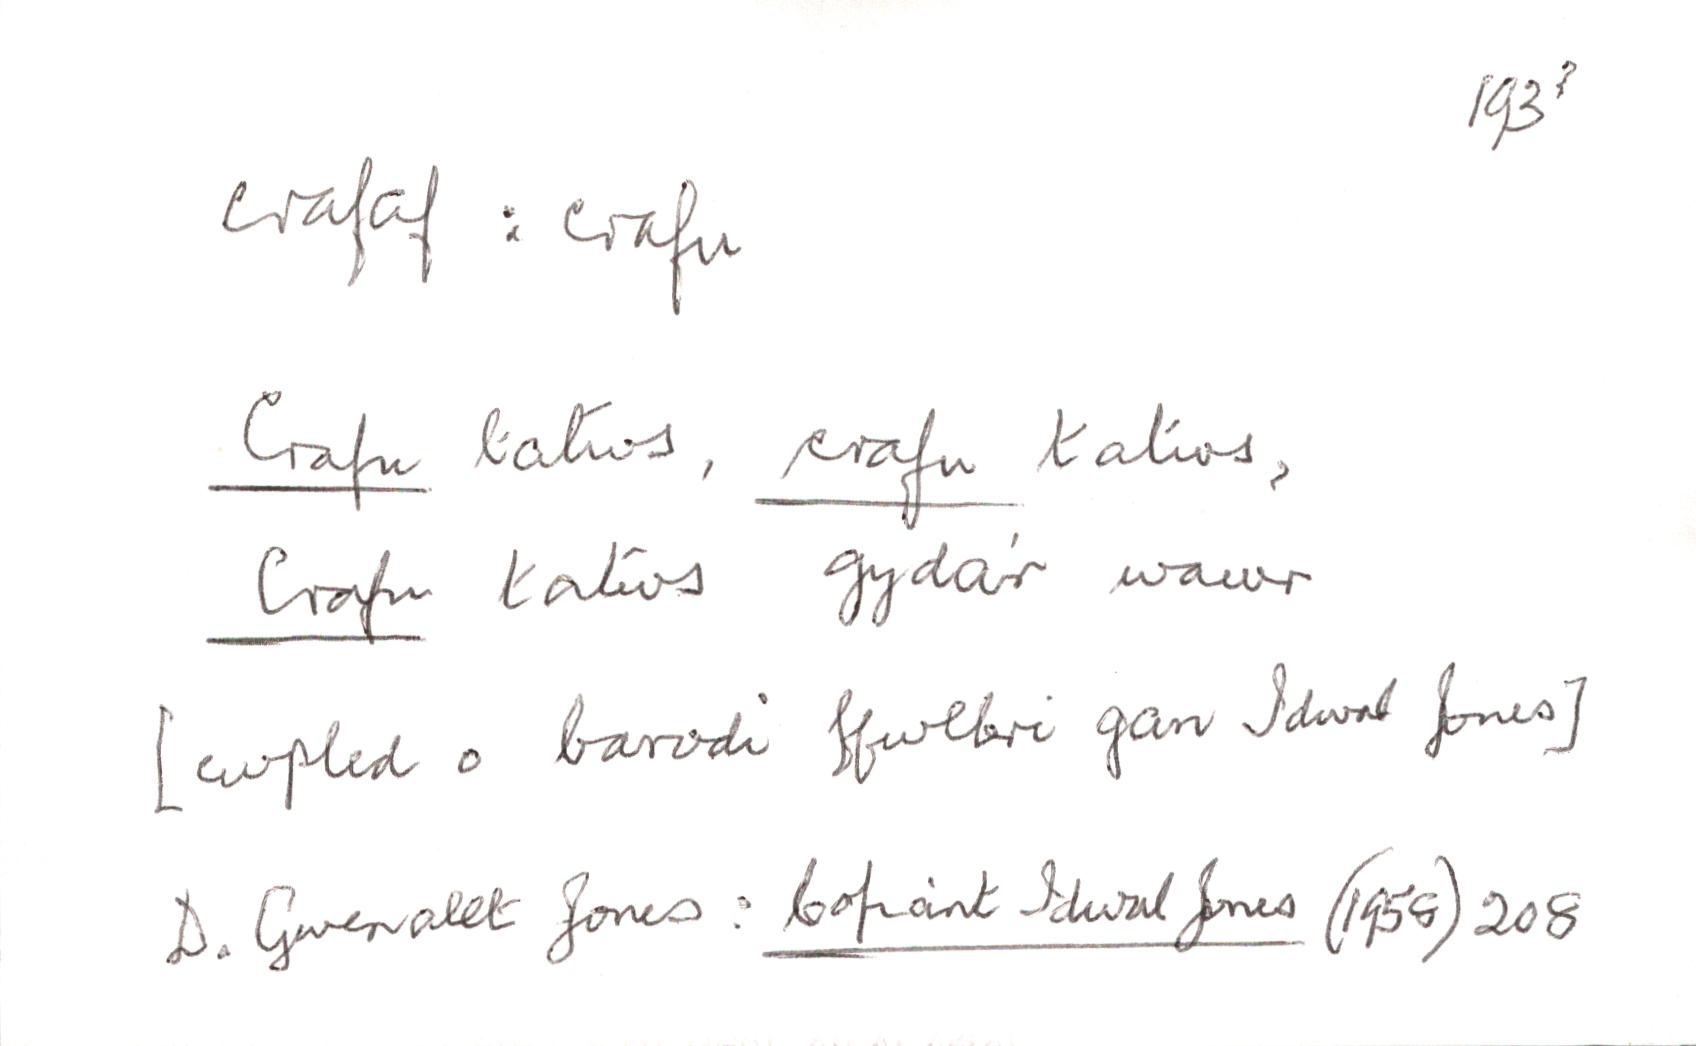 193?
crafaf : crafu
Crafu tatws, crafu tatws,
Crafu tatws gyda'r wawr
[cwpled o barodi ffwlbri gan Idwal Jones]
D. Gwenallt Jones : Cofiant Idwal Jones (1958) 208